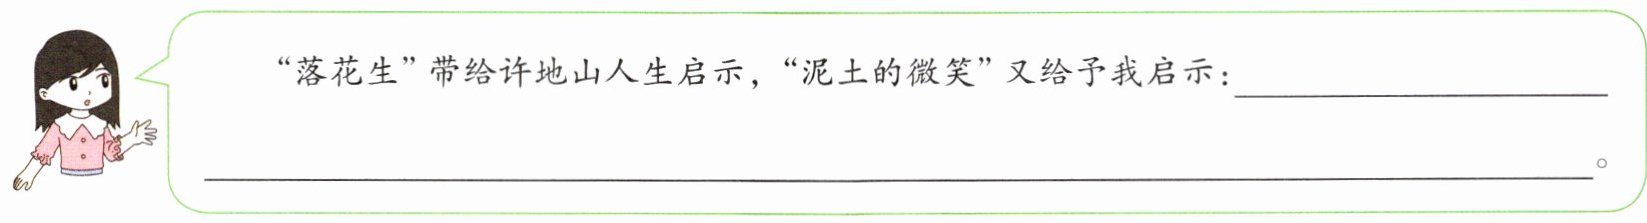 “落花生”带给许地山人生启示，“泥土的微笑”又给予我启示：
。